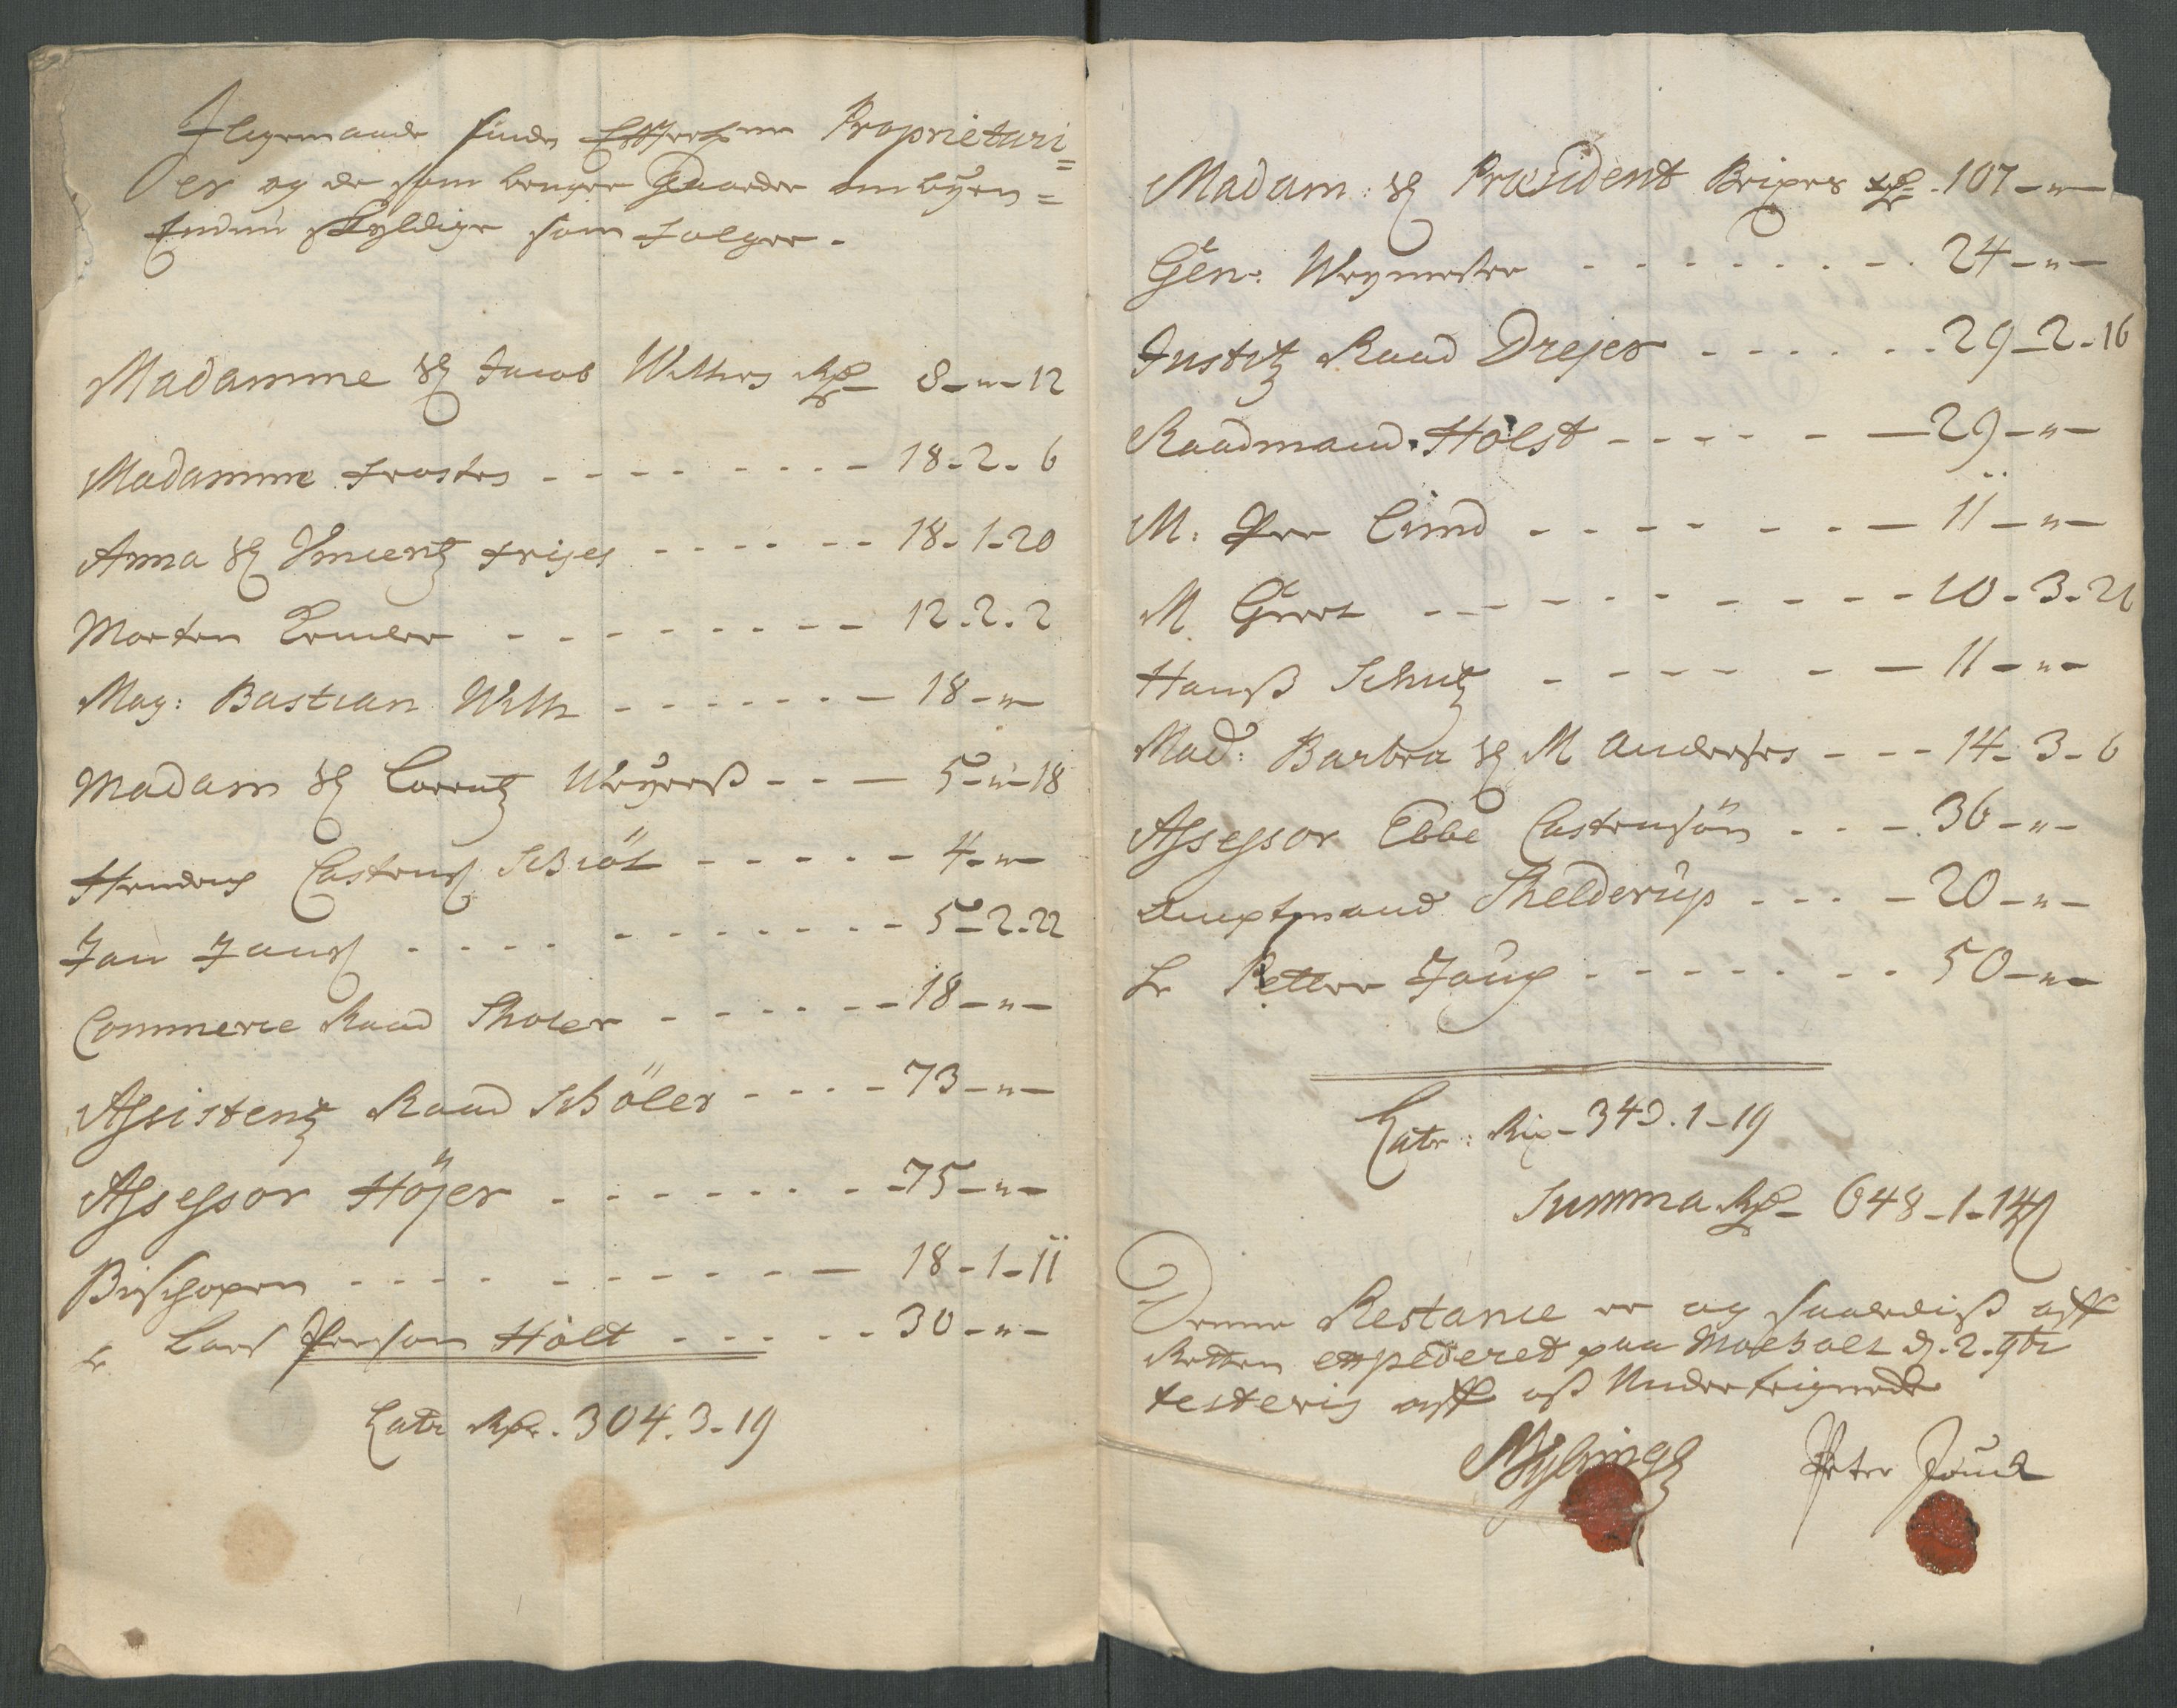 Iligemaade findes Efftersch: Proprietari=
er og de som bruger Gaarder om byen=
Endnu skyldige som folger.
Madamme Sl Jacob Wilthes Rdr 8-"-12
Madamme Frostes - - - 18-2-6
Anna Sl Vincentz Frises - - - 18-1-20
Morten - - - 12.2.2
Mag: Bastian With - - - 18-"-
Madam Sl Lorentz Weyerß - - - 5-"-18
Hendrich Castens Schröt - - - 4-"-
Jan Jans - - - 5-2-22
Commerce Raad Tholer - - - 18-"-
Assistentz Raad Schöler - - - 73-"-
Assessor Höjer - - - 75-"-
Bischopen - - - 18-1-11
Sr Lars Person Holt - - - 30-"-
Latr Rdr. 304.3-19
Madam: Sl Præsident Brixes Rdr. 107-"-
Gen: Weymester - - - 24-"-
Justitz Raad Drejer - - - 29-2-16
Raadmand Holst - - - 29-"-
M: Per Lund - - - 11-"-
M Geert - - - 10-3-21
Hanß Schutz - - - 11-"-
Mad: Barbra Sl M Anderses - - - 14-3-6
Assessor Ebbe Castensön - - - 36-"-
Amptmand Thelderup - - - 20-"-
Sr Petter Jauch - - - 50-"-
Latr: Rix-343.1-19
Summa Rdr- 648-1-14 s
Denne Restance er og saaledis aff
Retten expederet paa d. 2. 9br
testeris aff oß Underteignede
Peter Jauch